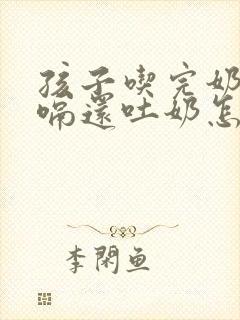 孩子喫完奶
嗝還吐奶怎
李閑魚